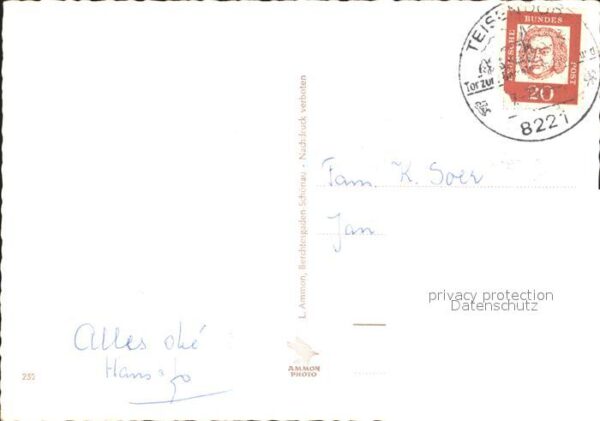 TEISENDORF
DEUTSCHE BUNDES POST
20
Tor zur
8221
L. Ammon, Berchtesgaden-Schönau - Nachdruck verboten
Fam. K. Soer
Jan
privacy protection
Datenschutz
Alles oké
Hans + Jo
AMMON
PHOTO